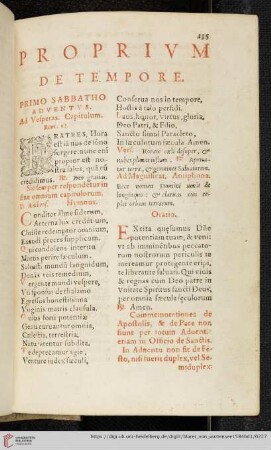 155
PROPRIVM
DE TEMPORE.
PRIMO SABBATHO
ADVENTVS.
Ad Vesperas. Capitulum.
Rom.
FRATRES, Hora
est iam nos de somno
surgere: nunc enim
propior est nostra
salus, quàm cum
credidimus. ℟. Deo gratias.
Sic semper respondetur in
fine omnium capitulorum.
Hymnus.
Conditor alme siderum,
Aeterna lux credentium,
Christe redemptor omnium,
Exaudi preces supplicum.
Qui condolens interitu
Mortis perire sæculum,
Saluasti mundū languidum,
Donās reis remedium.
Vergente mundi vespere,
Vti sponsus de thalamo
Egressus honestissima
Virginis matris clausula.
Cuius forti potentiæ
Genu curuantur omnia,
Cælestia, terrestria,
Nutu fatentur subdita.
Te deprecamur agie,
Venture iudex sæculi,
Conserua nos in tempore,
Hostis à telo perfidi.
Laus, honor, virtus, gloria,
Deo Patri, & Filio,
Sancto simul Paraclito,
In sæculorum sæcula. Amen.
Vers. Rorate cæli desuper, &
nubes pluant iustum. ℟. Aperiatur
terra, & germinet Saluatorem.
Ad Magnificat, Antiphona.
Ecce nomen Domini venit de
longinquo: & claritas eius replet
orbem terrarum.
Oratio.
EXcita quæsumus Dñe
potentiam tuam, & veni:
vt ab imminentibus peccatorum
nostrorum periculis te
mereamur protegente eripi,
te liberante saluari. Qui viuis
& regnas cum Deo patre in
vnitate Spiritus sancti Deus,
per omnia sæcula sæculorum
℟. Amen.
Commemorationes de
Apostolis, & de Pace non
fiunt per totum Aduentum
etiam in Officio de Sanctis.
In Aduentu non fit de festo,
nisi fuerit duplex, vel Semiduplex: